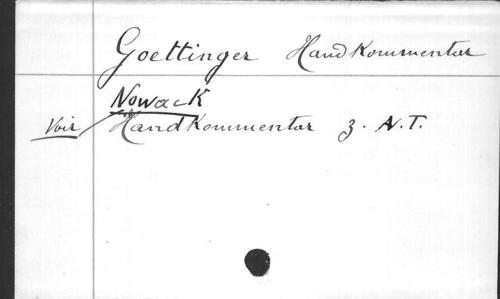 Goettinger Handkommentar
Nowack
Voir Handkommentar z. A.T.